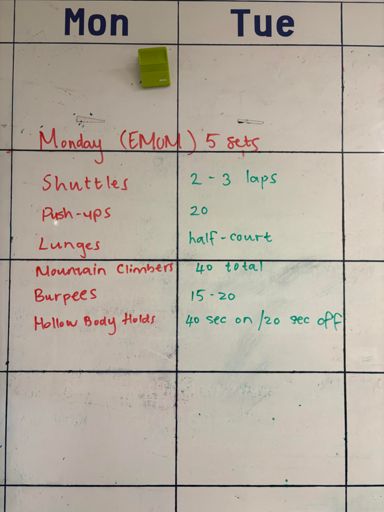 Mon Tue
Monday (EMOM) 5 sets
Shuttles 2 - 3 laps
Push-ups 20
Lunges half-court
Mountain Climbers 40 total
Burpees 15-20
Hollow Body Holds 40 sec on /20 sec off